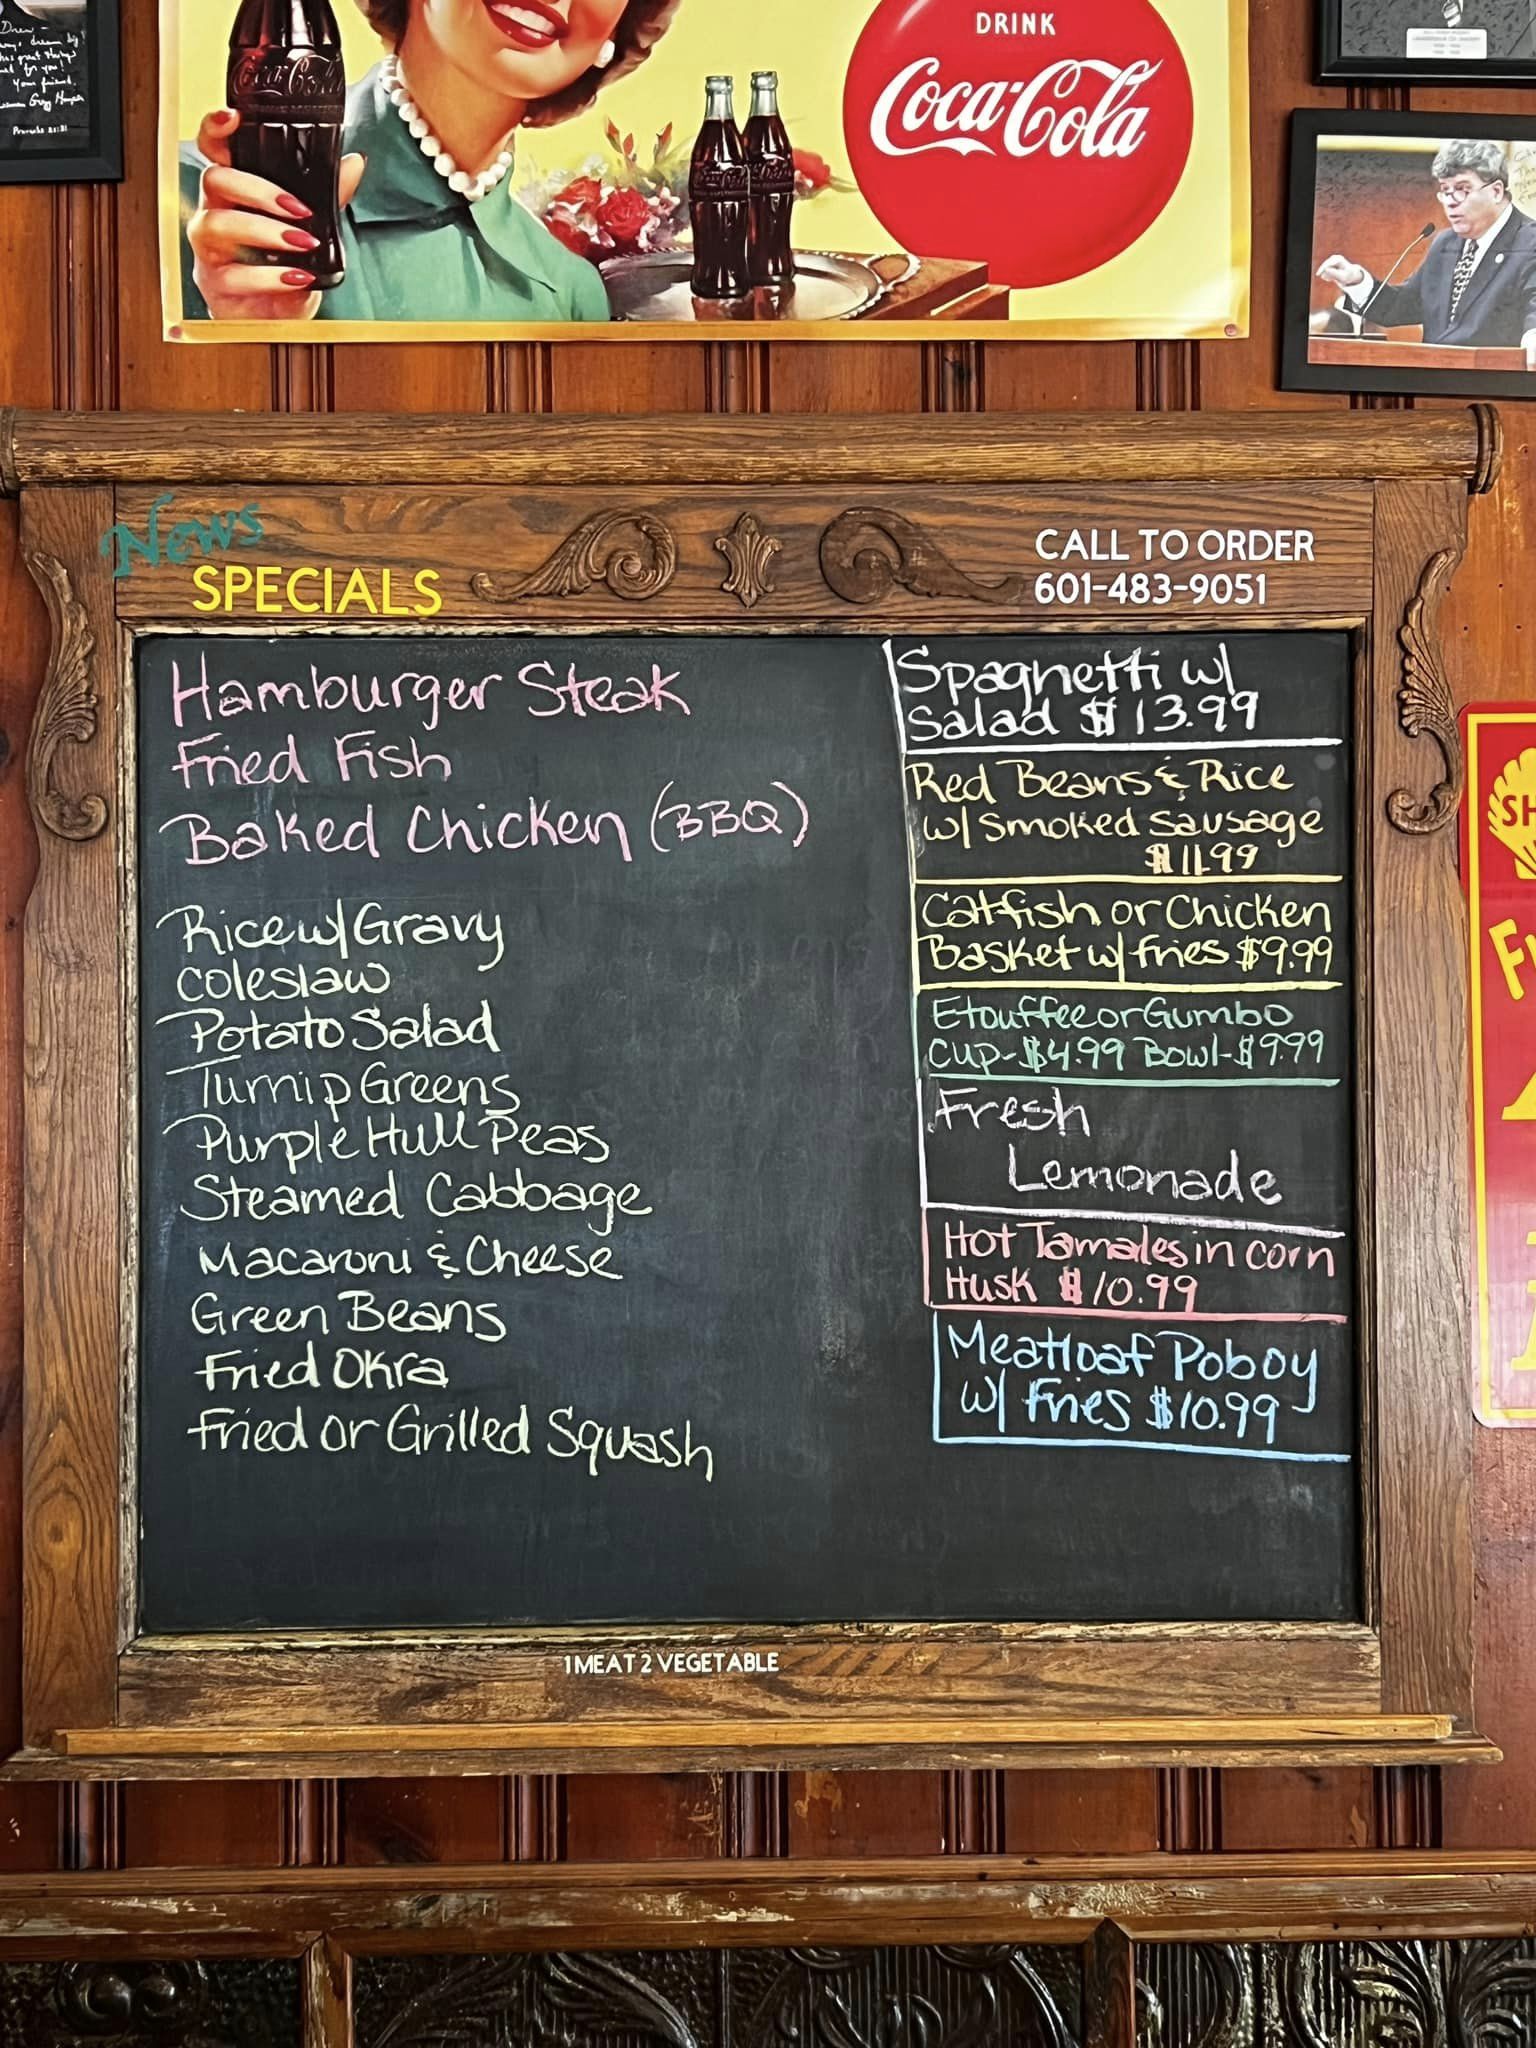 Drew -
dream big!
great things
for you,
Your friend,
Proverbs 21:31
Coca-Cola
DRINK
Coca-Cola
News
SPECIALS
CALL TO ORDER
601-483-9051
Hamburger Steak
Fried Fish
Baked Chicken (BBQ)
Rice w/ Gravy
Coleslaw
Potato Salad
Turnip Greens
Purple Hull Peas
Steamed Cabbage
Macaroni & Cheese
Green Beans
Fried Okra
Fried or Grilled Squash
Spaghetti w/
Salad $13.99
Red Beans & Rice
w/ Smoked Sausage
$11.99
Catfish or Chicken
Basket w/ Fries $9.99
Etouffee or Gumbo
Cup-$4.99 Bowl-$9.99
Fresh
Lemonade
Hot Tamales in corn
Husk $10.99
Meatloaf Poboy
w/ Fries $10.99
1 MEAT 2 VEGETABLE
SH